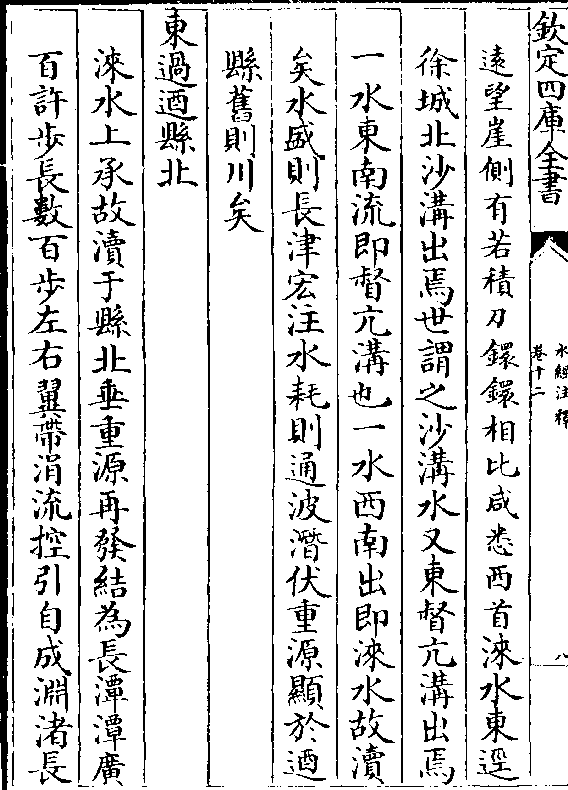 欽定四庫全書
水經注釋
卷十二
八
遠望崖側有若積刀鐶鐶相比咸悉西首淶水東逕
徐城北沙溝出焉世謂之沙溝水又東督亢溝出焉
一水東南流即督亢溝也一水西南出即淶水故瀆
矣水盛則長津宏注水耗則通波潛伏重源顯於遒
縣舊則川矣
東過遒縣北
淶水上承故瀆于縣北垂重源再發結為長潭潭廣
百許步長數百步左右翼帶涓流控引自成淵渚長